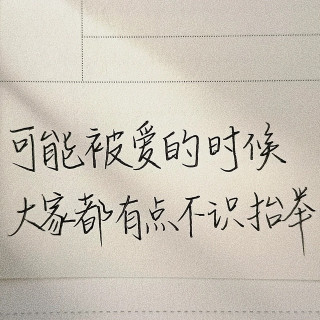 可能被爱的时候
大家都有点不识抬举